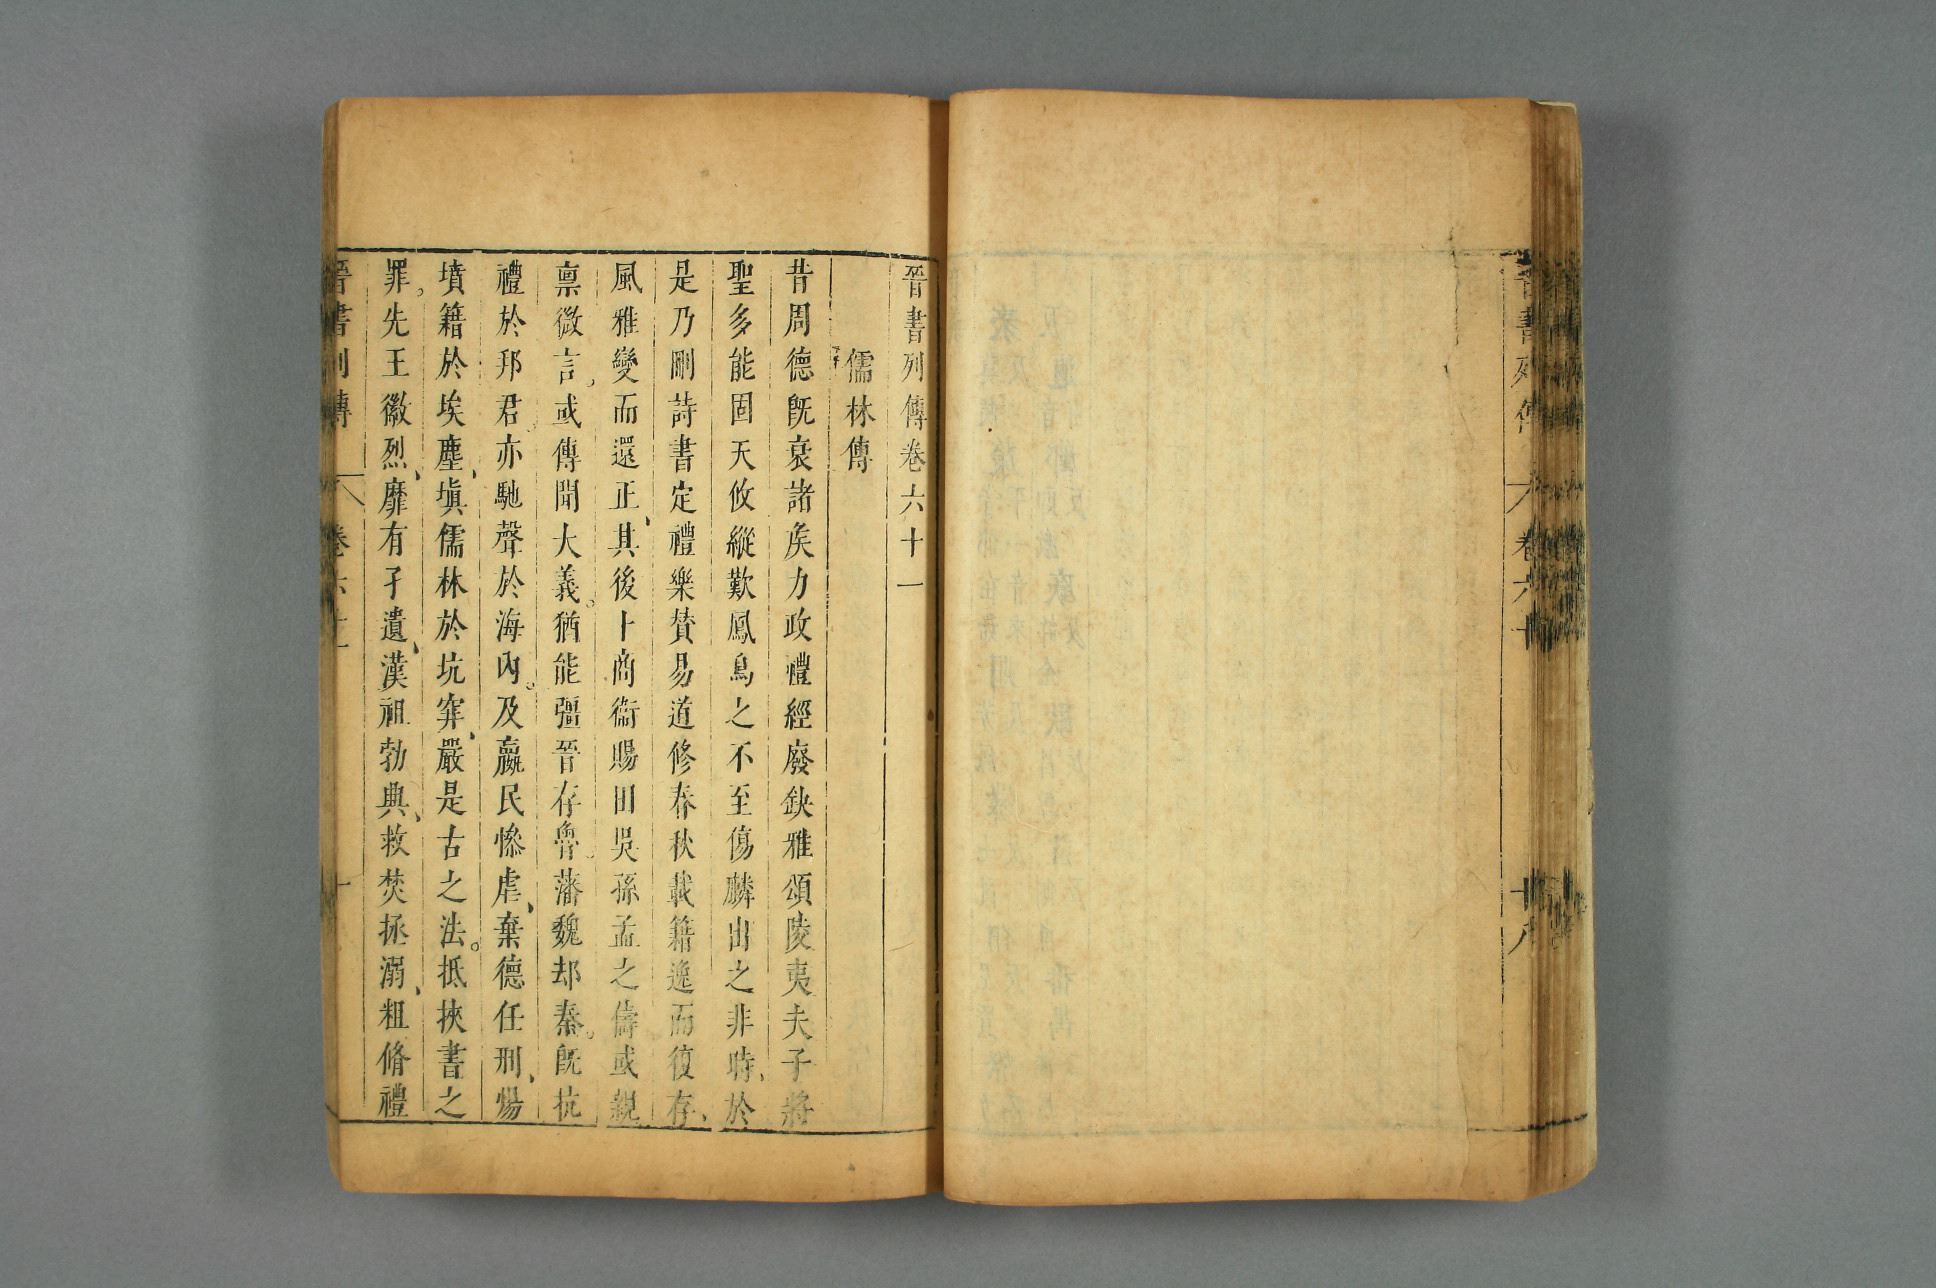 晉書列傳卷六十
十八
晉書列傳卷六十一
儒林傳
昔周德旣衰諸矦力政禮經廢缺雅頌陵夷夫子將
聖多能固天攸縱歎鳳鳥之不至傷麟出之非時、於
是乃刪詩書定禮樂賛易道修春秋載籍逸而復存、
風雅變而還正、其後卜商衞賜田吳孫孟之儔或親
禀微言。或傳聞大義。猶能彊晉存魯。藩魏却秦。旣抗
禮於邦君。亦馳聲於海內。及嬴民慘虐、棄德任刑、煬
墳籍於埃塵、塡儒林於坑穽、嚴是古之法。抵挾書之
罪。先王徽烈、靡有孑遺、漢祖勃興、救焚拯溺、粗脩禮
晉書列傳
卷六十一